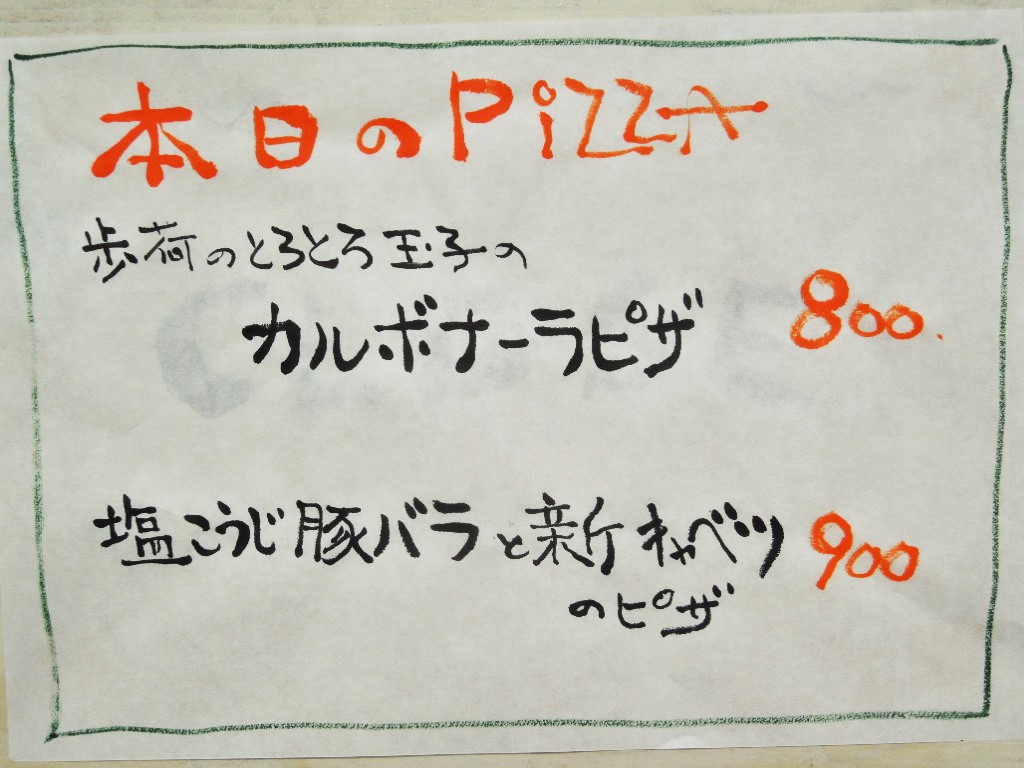 本日のPizzA
歩荷のとろとろ玉子の
カルボナーラピザ
800.
塩こうじ豚バラと新キャベツ
900
のピザ